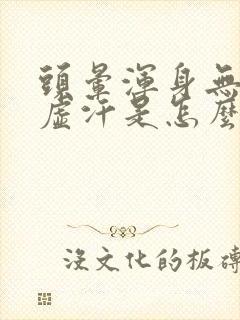 頭暈渾身無
虛汗是怎麼
沒文化的板磚